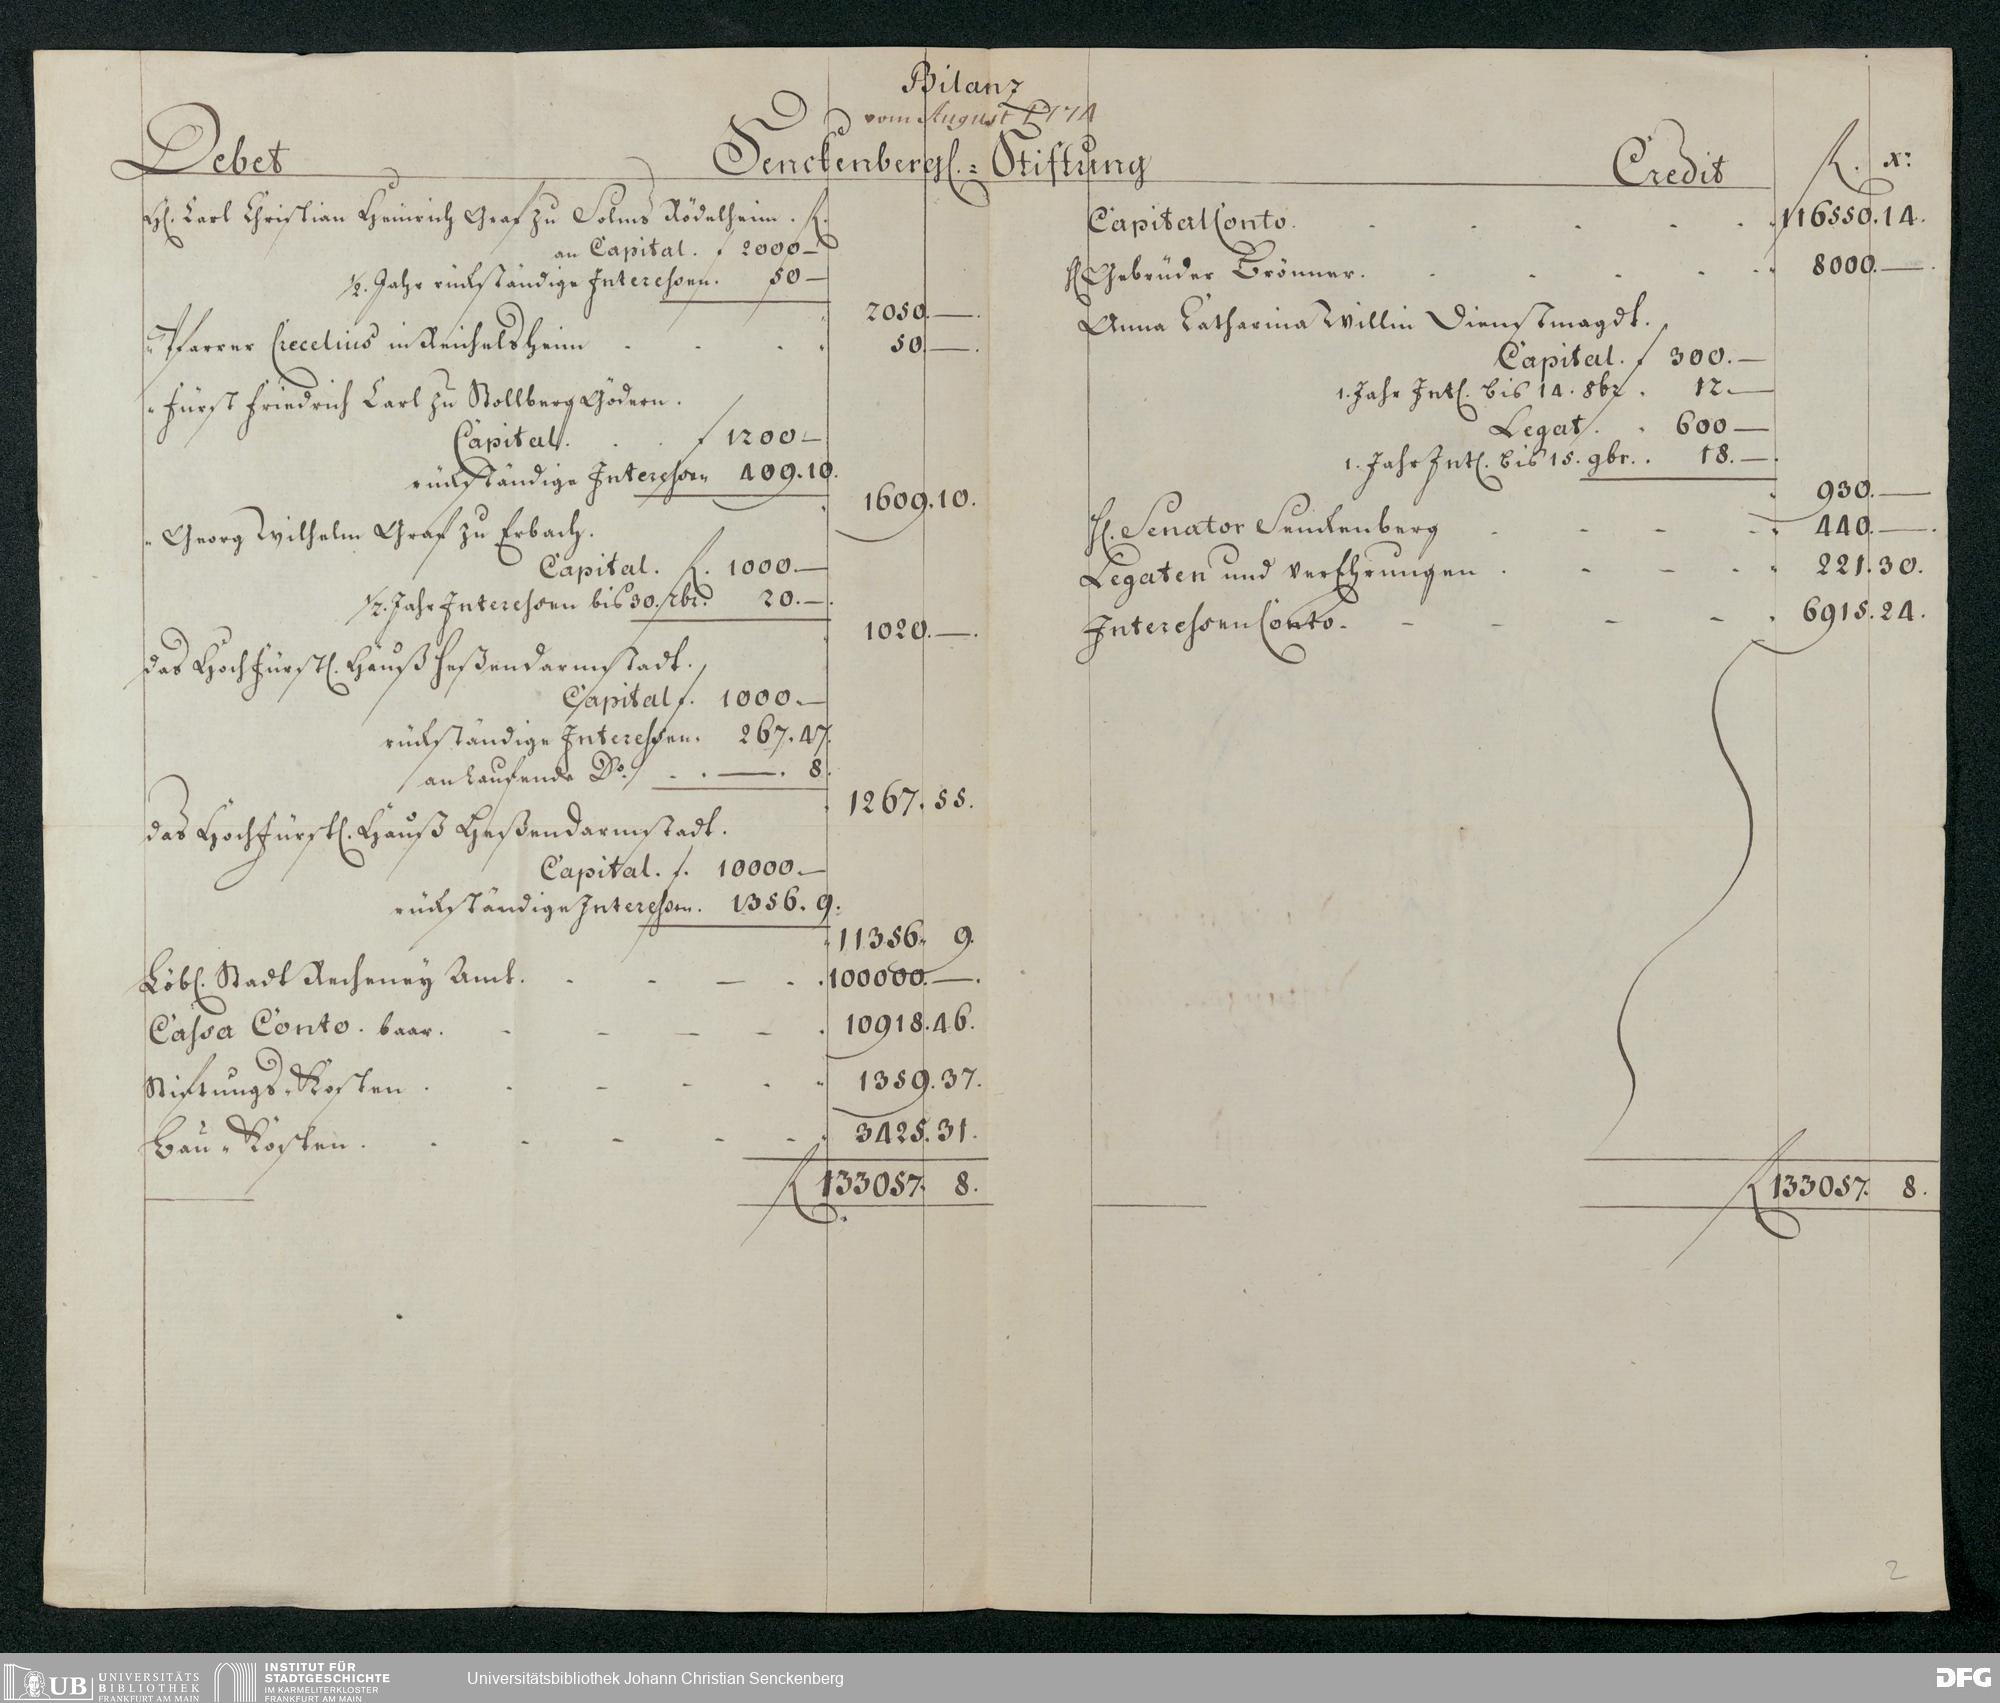 Bilanz
vom August 1774
Debet
Senckenbergl. = Stiftung
Credit
fl. xr.
Hl. Carl Christian Heinrich Graf zu Solms Rödelheim. fl.
an Capital. f 2000 —
1/2. Jahr rückständige Interessen. 50 —
2050. —.
" Pfarrer Crecelius in Reichelsheim - - . " 50. —.
" Fürst Friedrich Carl zu Stollberg Gödern.
Capital. . . f 1200 —
rückständige Interessen 409. 10.
1609. 10.
" Georg Wilhelm Graf zu Erbach.
Capital. fl. 1000. —
1/2. Jahr Interessen bis 30. 20. —.
1020. —.
das Hochfürstl. Hauß Heßendarmstadt.
Capital f. 1000. —
rückständige Interessen. 267. 47.
an laufende Do. . . —. 8.
1267. 55.
das Hochfürstl. Hauß Heßendarmstadt.
Capital. f. 10000. —
rückständige Interessen. 1356. 9.
11356. 9.
Löbl. Stadt Recheney Amt. - - — . . 100000. —.
Cassa Conto. baar. - - — — . 10918. 46.
Stiftungs-Kosten . - - - . " 1359. 37.
Bau-Kosten. - - - - - " 3425. 31.
fl 133057. 8.
Capital Conto. . . . . . 116550. 14.
Hl Gebrüder Brönner. - . . . . " 8000. —.
Anna Catharina Willin Dienstmagdt.
Capital. f 300. —
1. Jahr Intl. bis 14. 8br. . 12. —
Legat. . 600 —
1. Jahr Intl. bis 15. 9br. . 18. —.
930. —
Hl. Senator Senckenberg - - - - " 440. —.
Legaten und verEhrungen . - — . " 221. 30.
Interessen Conto. - - - - . 6915. 24.
fl 133057. 8.
2
UB UNIVERSITÄTS
BIBLIOTHEK
FRANKFURT AM MAIN
INSTITUT FÜR
STADTGESCHICHTE
IM KARMELITERKLOSTER
FRANKFURT AM MAIN
Universitätsbibliothek Johann Christian Senckenberg
DFG